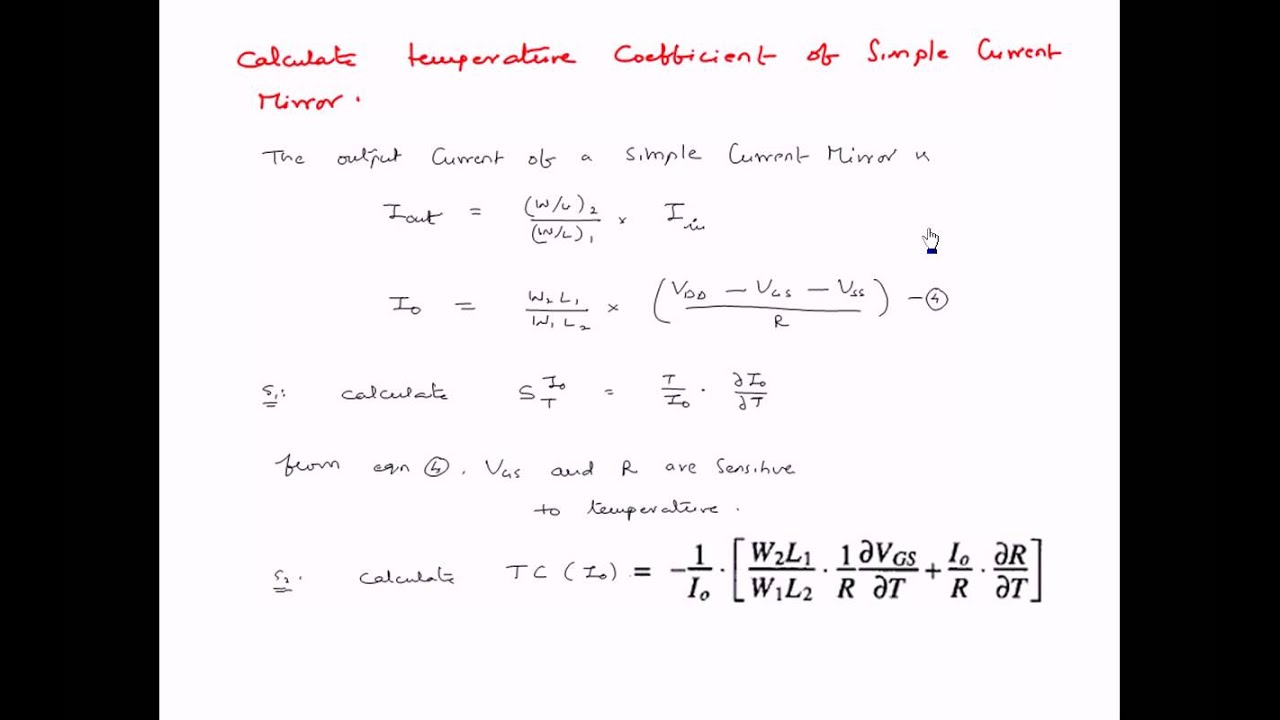 Calculate temperature Coefficient of Simple Current
Mirror.
The output Current of a simple Current Mirror is
I_out = (W/L)_2 / (W/L)_1 × I_in
I_o = W_2 L_1 / W_1 L_2 × ( V_DD – V_GS – V_SS / R ) – ④
S_1: Calculate S_T^{I_o} = T/I_o · ∂I_o/∂T
from eqn ④. V_GS and R are Sensitive
to temperature.
S_2. Calculate TC (I_o) = -1/I_o · [ W_2L_1/W_1L_2 · 1/R ∂V_GS/∂T + I_o/R · ∂R/∂T ]